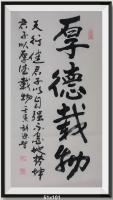 厚德载物
天行健君子以自强不息地势坤
君子以厚德载物
61x101